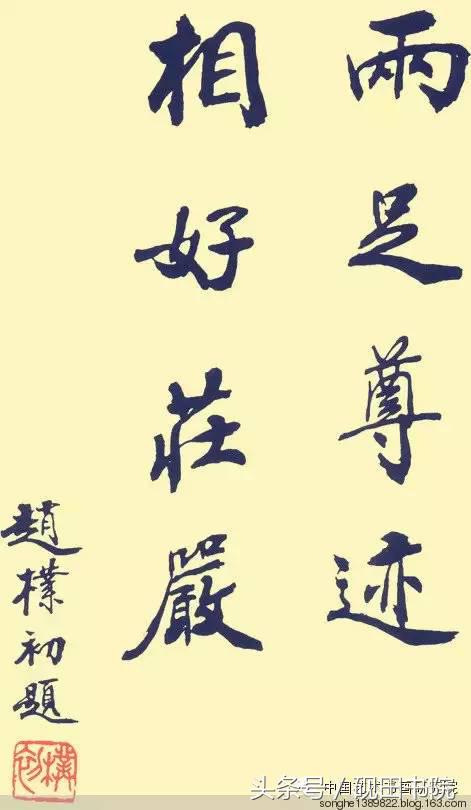 兩足尊迹
相好莊嚴
趙樸初題
头条号/砚田书院
songhe1389822.blog.163.com